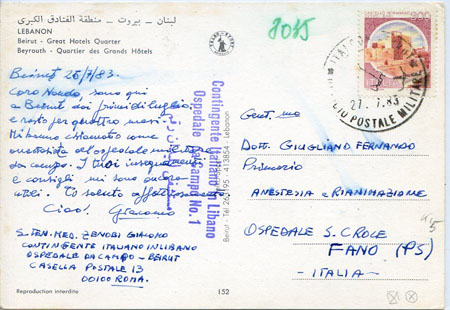 لبنان - بيروت - منطقة الفنادق الكبرى
LEBANON
Beirut - Great Hotels Quarter
Beyrouth - Quartier des Grands Hôtels
8015
Beirut 26/7/83.
Caro Nando, sono qui
a Beirut dai primi di luglio
e resto per quattro mesi.
Mi hanno chiamato come
anestesista all'ospedale militare
da campo. I tuoi insegnamenti
e consigli mi sono ancora
utili. Ti saluto affettuosamente
Ciao! Giacomo
S. TEN. MED. ZENOBI GIACOMO
CONTINGENTE ITALIANO IN LIBANO
OSPEDALE DA CAMPO - BEIRUT
CASELLA POSTALE 13
00100 ROMA.
Reproduction interdite
152
Contingente Italiano in Libano
Ospedale da Campo No. 1
Beirut - Tel
413854 - Lebanon
27.7.83
POSTALE MILITARE
Gent.mo
DOTT. GIUGLIANO FERNANDO
Primario
ANESTESIA e RIANIMAZIONE
OSPEDALE S. CROCE
FANO (PS)
- ITALIA -